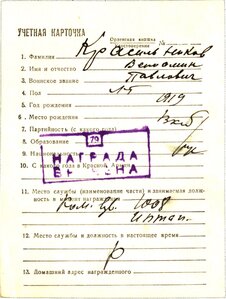 УЧЕТНАЯ КАРТОЧКА
Орденская книжка
Удостоверение
1. Фамилия Красильников
2. Имя и отчество Вениамин
Павлович
3. Воинское звание
4. Пол
5. Год рождения 1919
6. Место рождения
7. Партийность (с какого года) Вкпб
8. Образование
9. Национальность рус
79
НАГРАДА
ВРУЧЕНА
10. С какого года в Красной Армии
11. Место службы (наименование части) и занимаемая должность в момент награждения
Ком. 1008
12. Место службы и должность в настоящее время
13. Домашний адрес награжденного